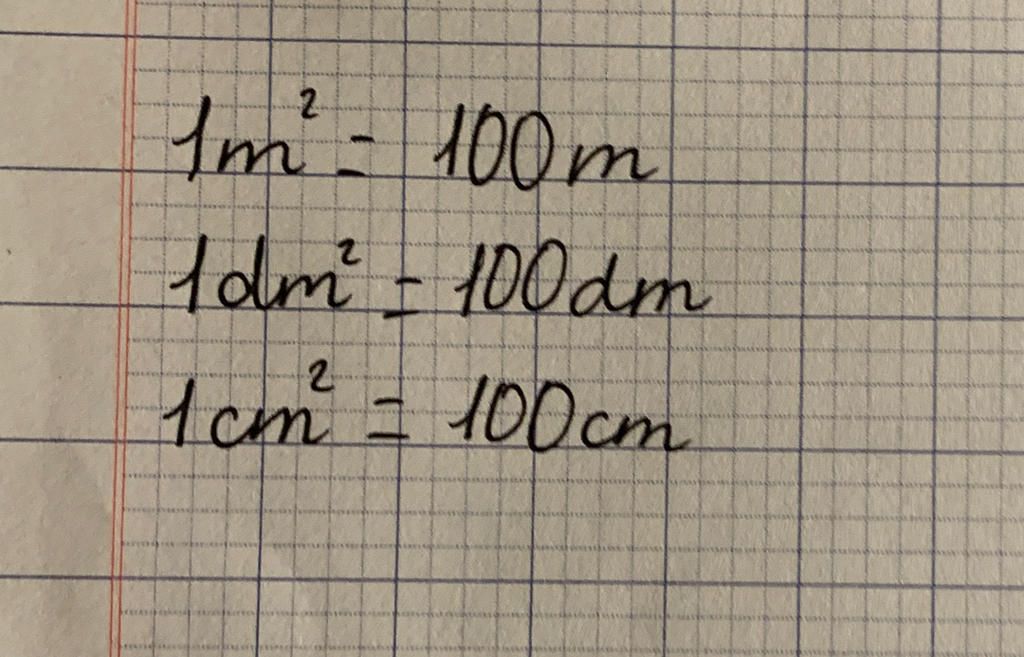 1m² = 100m
1dm² = 100dm
1cm² = 100cm